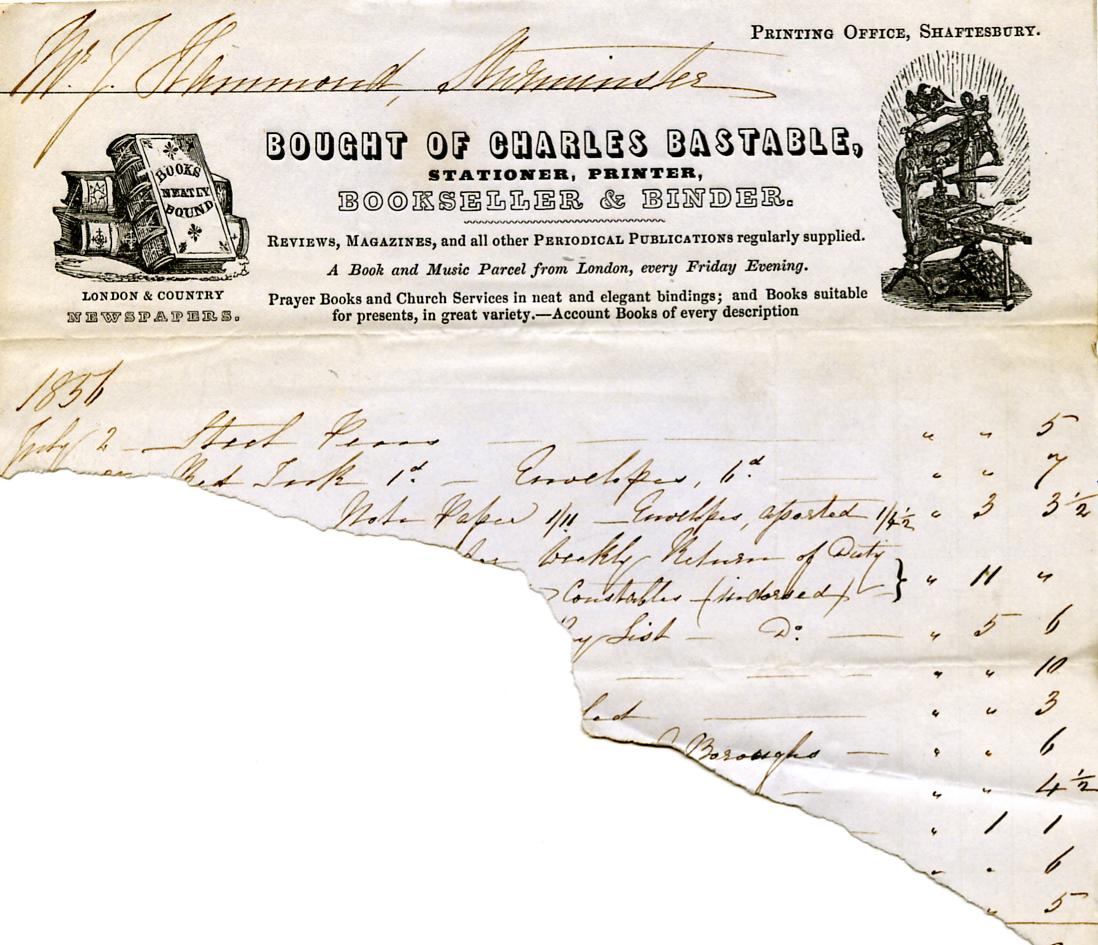 PRINTING OFFICE, SHAFTESBURY.
Mr. J. Hammond, Sturminster
BOUGHT OF CHARLES BASTABLE,
STATIONER, PRINTER,
BOOKSELLER & BINDER.
BOOKS
NEATLY
BOUND
LONDON & COUNTRY
NEWSPAPERS.
REVIEWS, MAGAZINES, and all other PERIODICAL PUBLICATIONS regularly supplied.
A Book and Music Parcel from London, every Friday Evening.
Prayer Books and Church Services in neat and elegant bindings; and Books suitable
for presents, in great variety.—Account Books of every description
1856
July 2 — Steel Pens — — — " " 5
Red Ink 1d. — Envelopes, 6d. — " " 7
Note Paper 1/11 — Envelopes, assorted 1/4½ " 3 3½
Weekly Return of Duty
Constables (indorsed) — } " 11 "
List — Do. — " 5 6
— — — " " 10
— " " 3
Boroughs — " " 6
— " " 4½
— " 1 1
" " 6
" 5